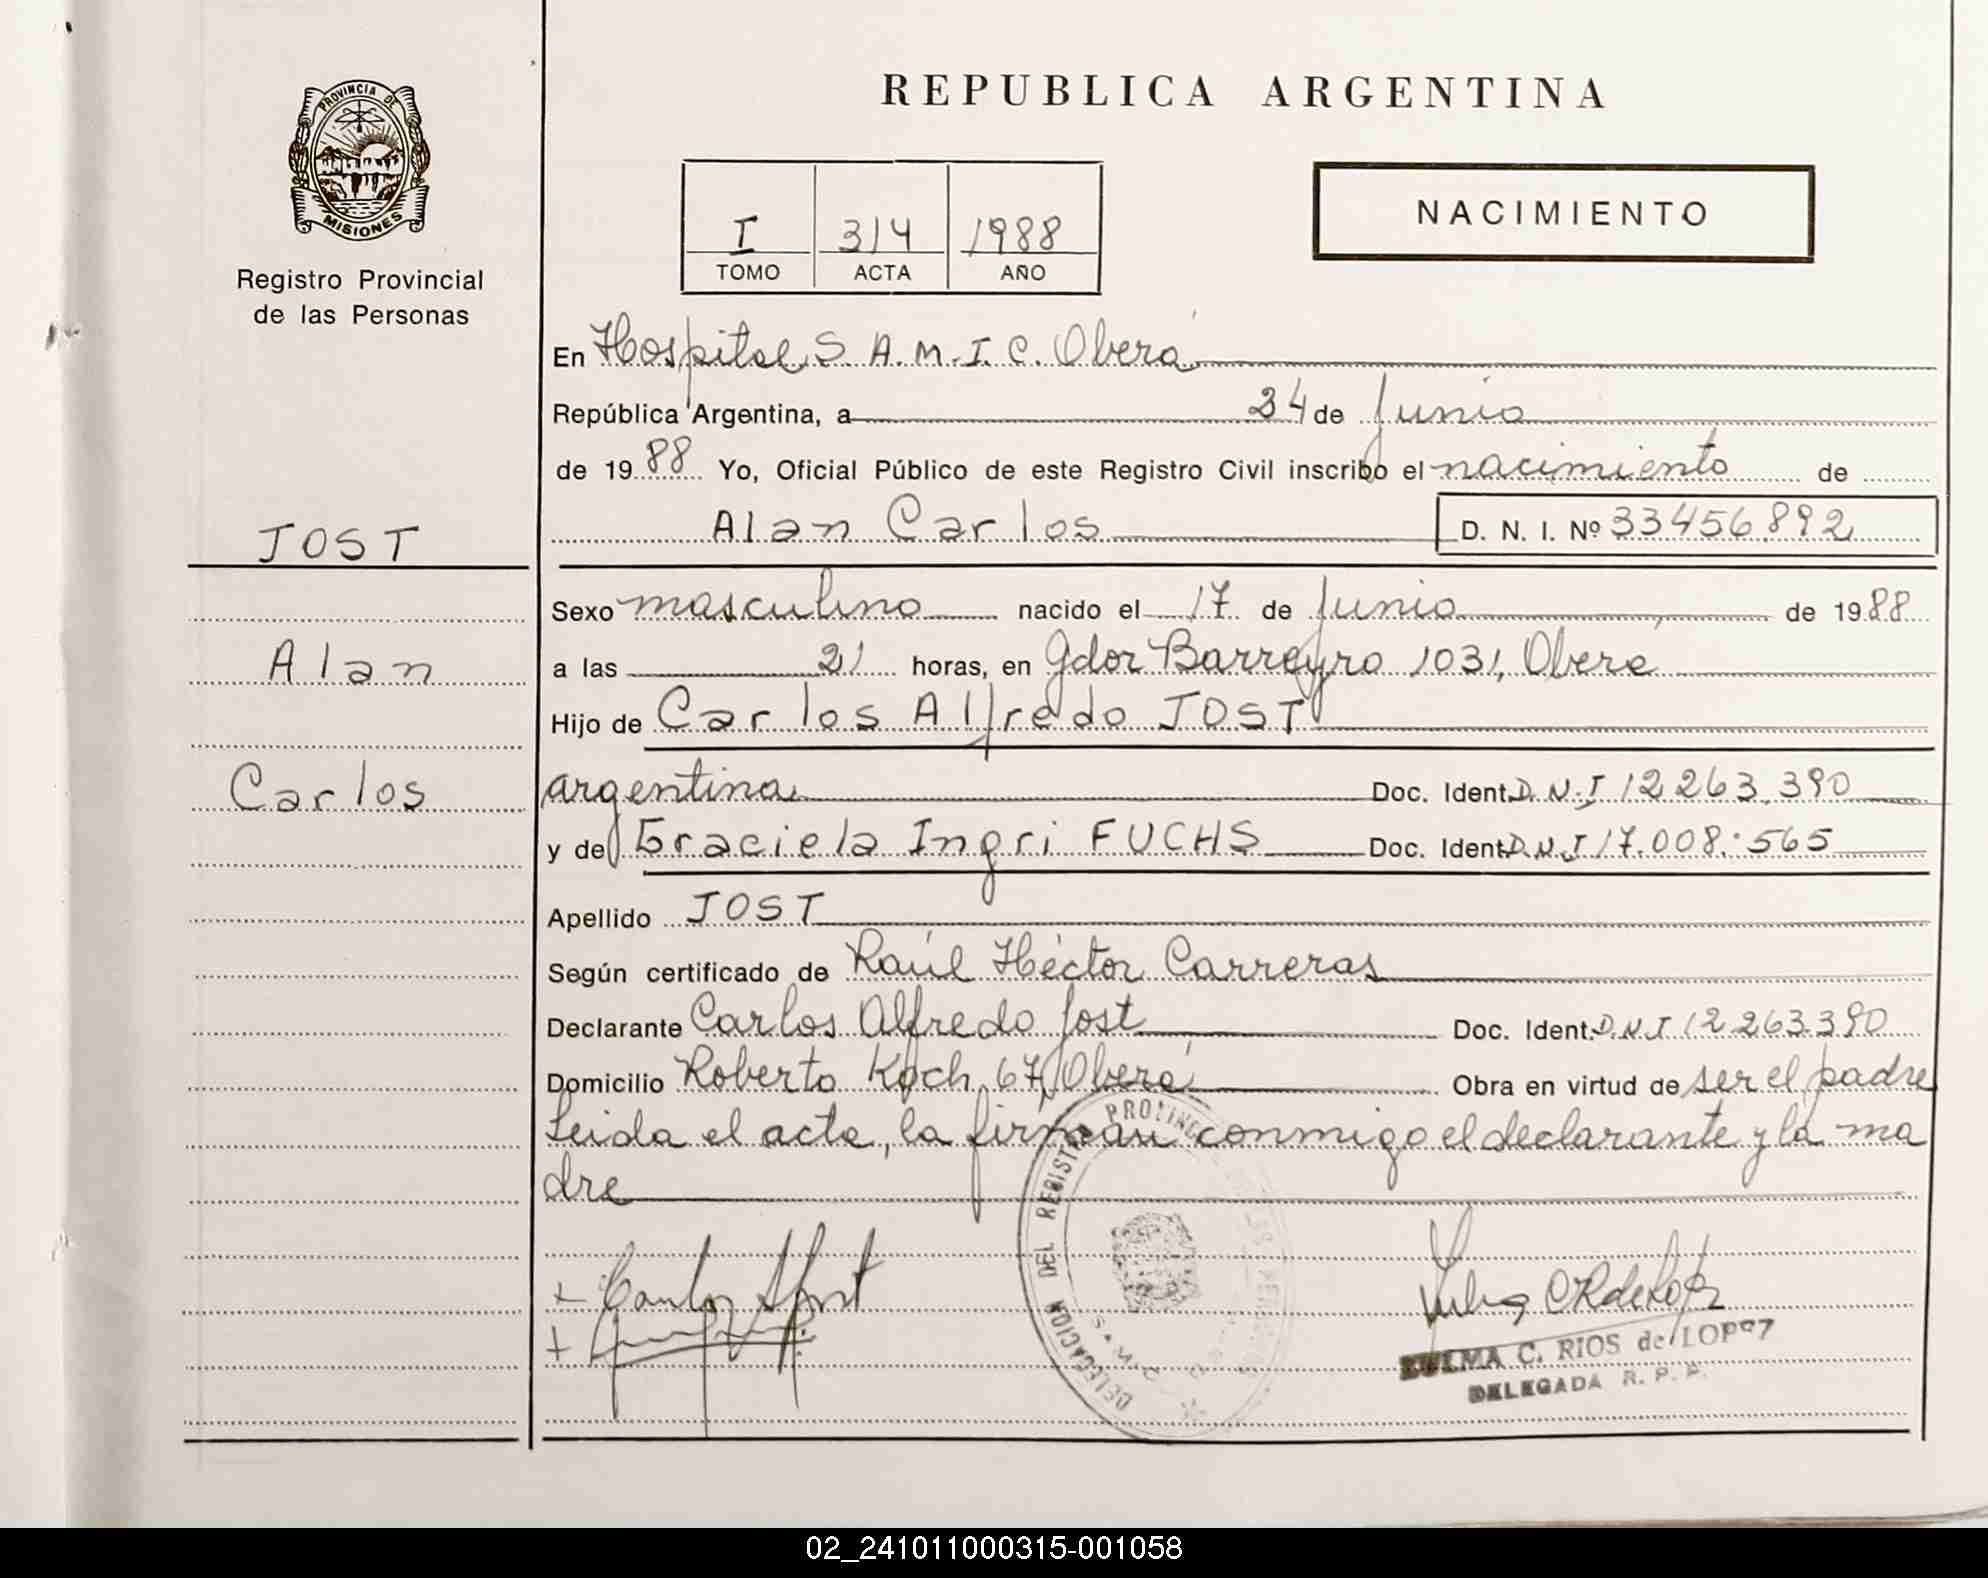 REPUBLICA ARGENTINA
PROVINCIA DE
MISIONES
Registro Provincial
de las Personas
I 314 1988
TOMO ACTA AÑO
NACIMIENTO
En Hospital S.A.M.I.C. Oberá
República Argentina, a 24 de Junio
de 1988 Yo, Oficial Público de este Registro Civil inscribo el nacimiento de
Alan Carlos D. N. I. Nº 33456892
JOST
Alan
Carlos
Sexo masculino nacido el 17 de Junio de 1988
a las 21 horas, en Gdor Barreyro 1031, Oberá
Hijo de Carlos Alfredo JOST
argentina Doc. Ident. D.N.I 12263.390
y de Graciela Ingri FUCHS Doc. Ident. D.N.I 17.008.565
Apellido JOST
Según certificado de Raúl Héctor Carreras
Declarante Carlos Alfredo Jost Doc. Ident. D.N.I 12263390
Domicilio Roberto Koch 67, Oberá Obra en virtud de ser el padre
Leida el acta, la firman conmigo el declarante y la ma
dre
DELEGACION DEL REGISTRO PROVINC
Carlos A Jost
ZULMA C. RIOS de LOPEZ
DELEGADA R. P. P.
02_241011000315-001058